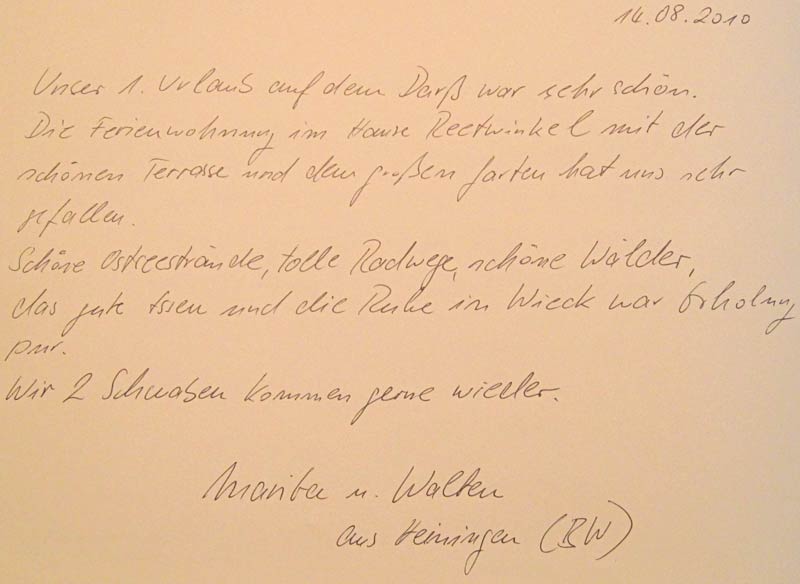 14.08.2010
Unser 1. Urlaub auf dem Darß war sehr schön.
Die Ferienwohnung im Hause Reetwinkel mit der
schönen Terrasse und dem großen Garten hat uns sehr
gefallen.
Schöne Ostseestrände, tolle Radwege, schöne Wälder,
das gute Essen und die Ruhe in Wieck war Erholung
pur.
Wir 2 Schwaben kommen gerne wieder.
Marita u. Walter
aus Heiningen (BW)